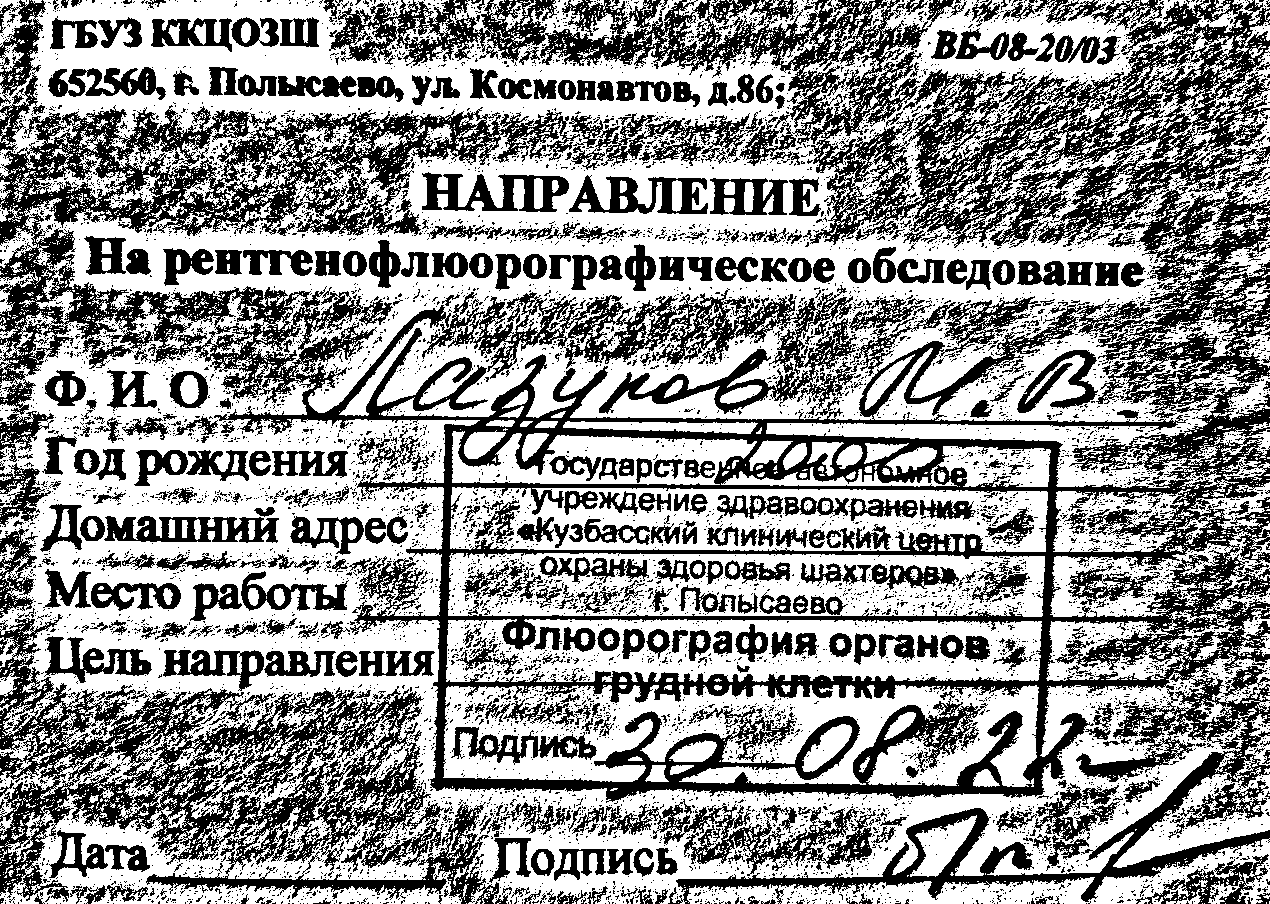 ГБУЗ ККЦОЗШ
ВБ-08-20/03
652560, г. Полысаево, ул. Космонавтов, д.86;
НАПРАВЛЕНИЕ
На рентгенофлюорографическое обследование
Ф. И. О. Лазуков М. В.
Год рождения 2000
Домашний адрес
Место работы
Цель направления
Государственное автономное
учреждение здравоохранения
«Кузбасский клинический центр
охраны здоровья шахтеров»
г. Полысаево
Флюорография органов
грудной клетки
Подпись 30.08.22
Дата
Подпись